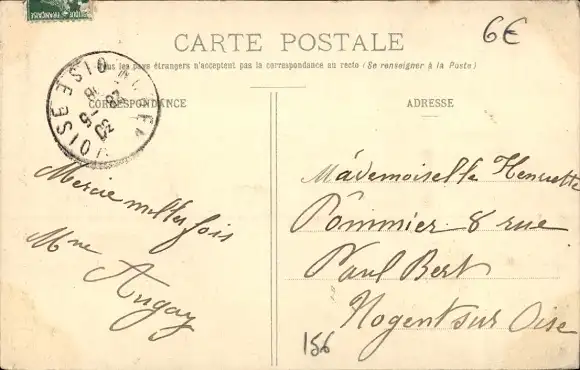 6€
CARTE POSTALE
Tous les pays étrangers n'acceptent pas la correspondance au recto (Se renseigner à la Poste)
CORRESPONDANCE
ADRESSE
OISE
Mercie milles fois
Mme Angay
Mádemoiselle Henriette
Pommier 8 rue
Paul Bert
Nogent sur Oise
156